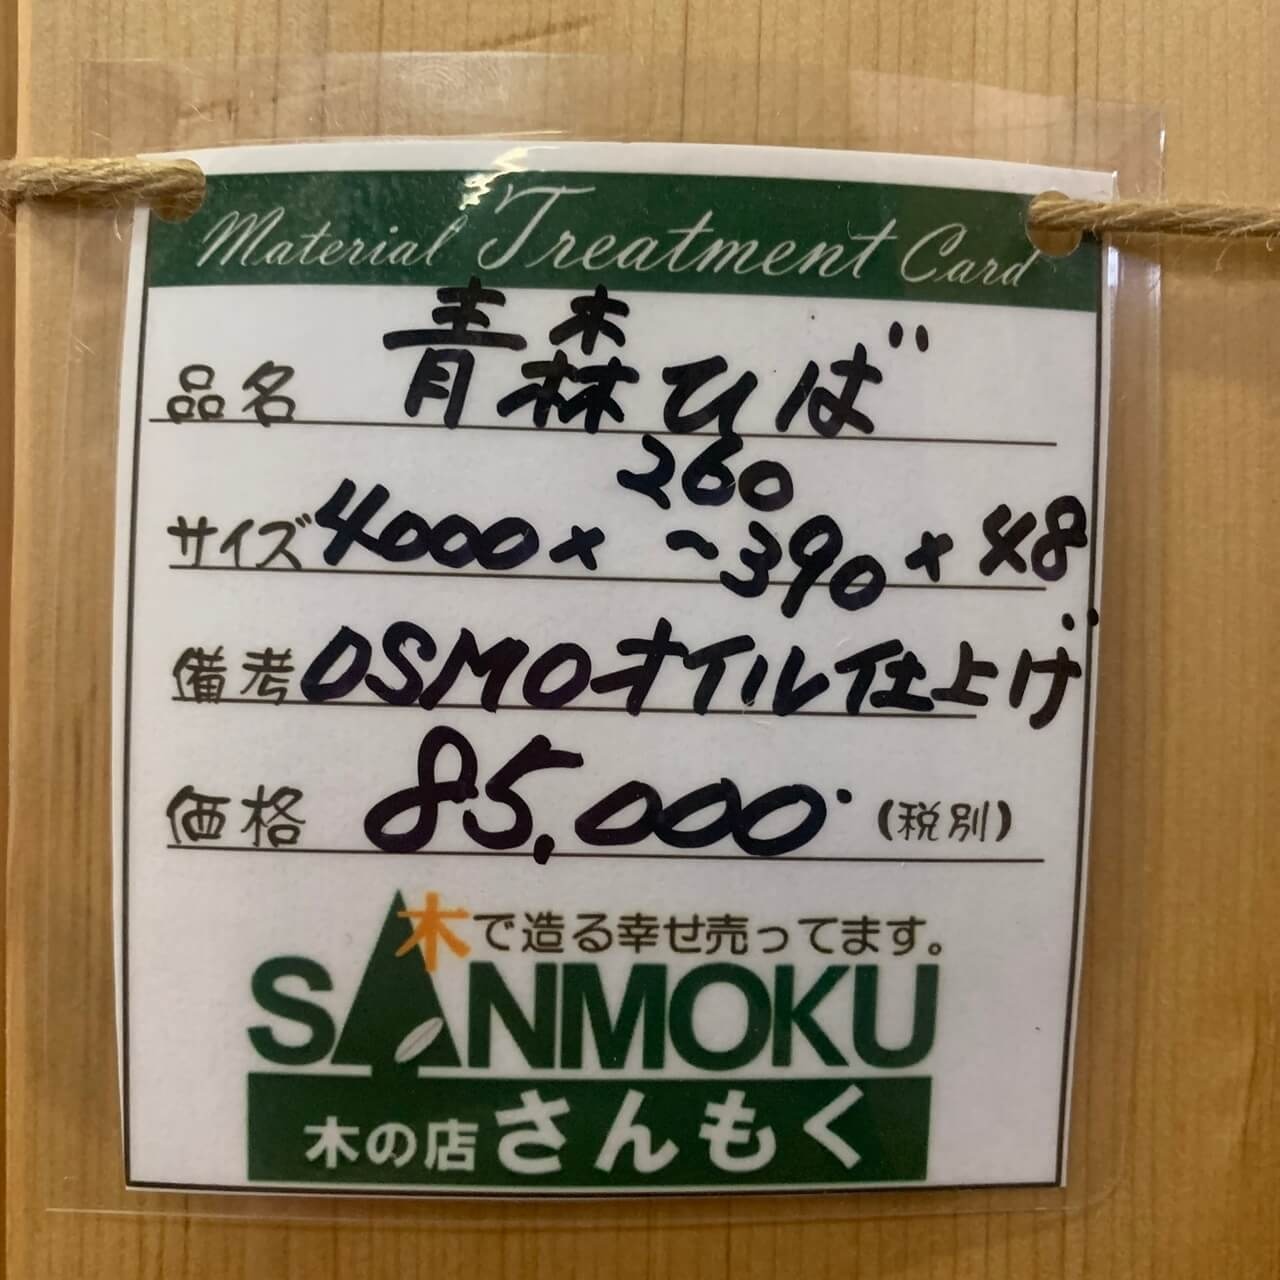 Material Treatment Card
品名 青森ひば
サイズ 4000× 260～390×48
備考 OSMOオイル仕上げ
価格 85,000 (税別)
木で造る幸せ売ってます。
SANMOKU
木の店さんもく